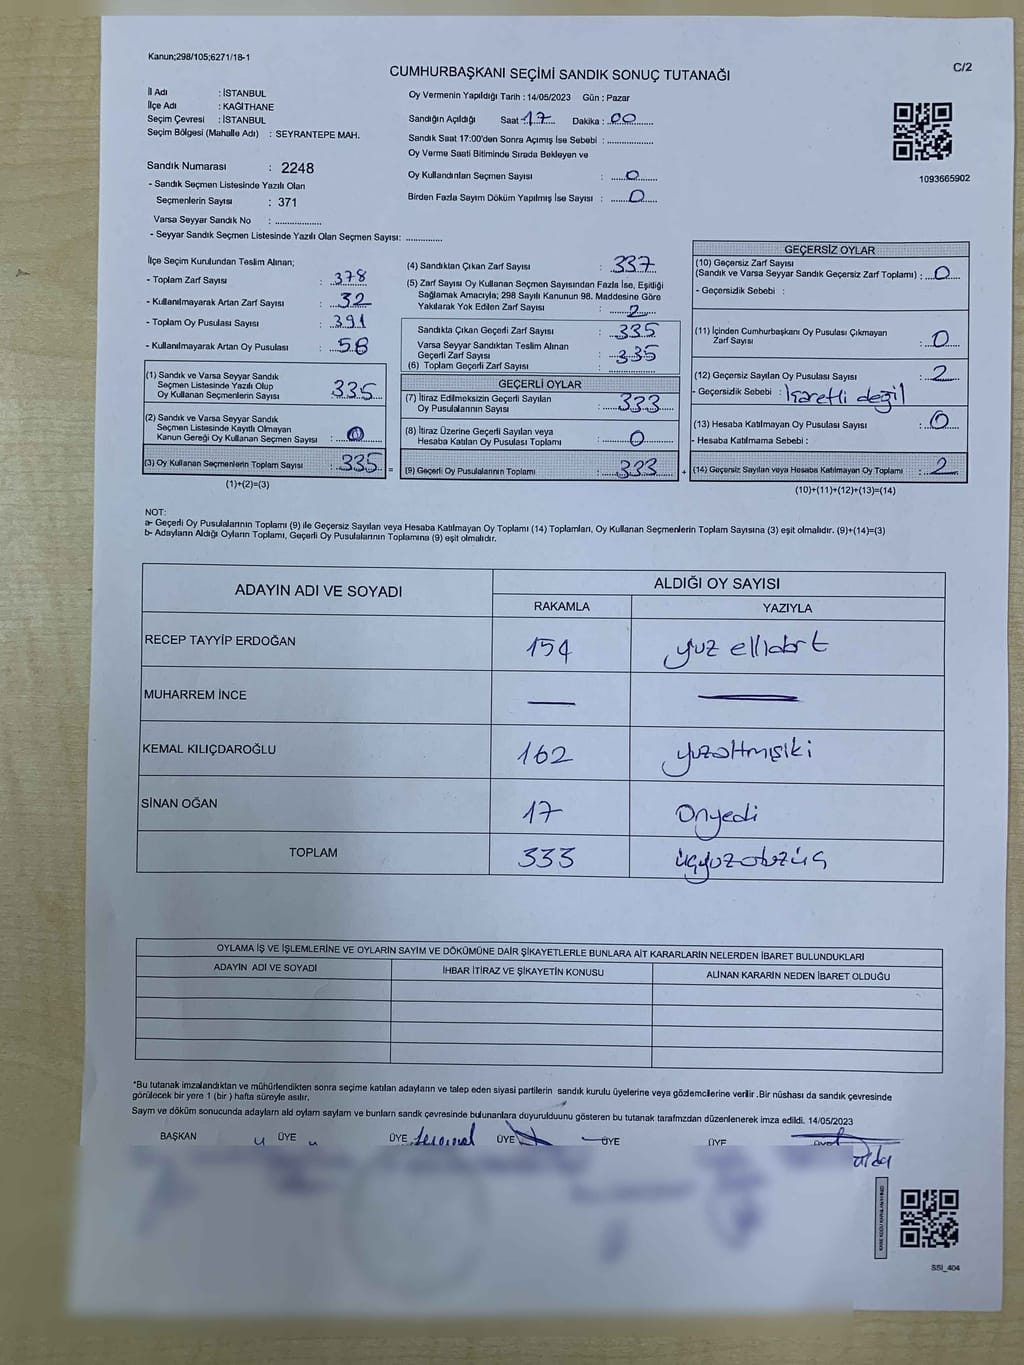 Kanun;298/105;6271/18-1
C/2
CUMHURBAŞKANI SEÇİMİ SANDIK SONUÇ TUTANAĞI
İl Adı : İSTANBUL
İlçe Adı : KAĞITHANE
Seçim Çevresi : İSTANBUL
Seçim Bölgesi (Mahalle Adı) : SEYRANTEPE MAH.
Oy Vermenin Yapıldığı Tarih : 14/05/2023 Gün : Pazar
Sandığın Açıldığı Saat 17 Dakika : 00
Sandık Saat 17:00'den Sonra Açımış İse Sebebi :
Oy Verme Saati Bitiminde Sırada Bekleyen ve
Oy Kullandırılan Seçmen Sayısı : 0
Birden Fazla Sayım Döküm Yapılmış İse Sayısı : 0
1093665902
Sandık Numarası : 2248
- Sandık Seçmen Listesinde Yazılı Olan
Seçmenlerin Sayısı : 371
Varsa Seyyar Sandık No :
- Seyyar Sandık Seçmen Listesinde Yazılı Olan Seçmen Sayısı:
İlçe Seçim Kurulundan Teslim Alınan;
- Toplam Zarf Sayısı : 378
- Kullanılmayarak Artan Zarf Sayısı : 32
- Toplam Oy Pusulası Sayısı : 391
- Kullanılmayarak Artan Oy Pusulası : 58
(1) Sandık ve Varsa Seyyar Sandık
Seçmen Listesinde Yazılı Olup
Oy Kullanan Seçmenlerin Sayısı 335
(2) Sandık ve Varsa Seyyar Sandık
Seçmen Listesinde Kayıtlı Olmayan
Kanun Gereği Oy Kullanan Seçmen Sayısı : 0
(3) Oy Kullanan Seçmenlerin Toplam Sayısı : 335 =
(1)+(2)=(3)
(4) Sandıktan Çıkan Zarf Sayısı : 337
(5) Zarf Sayısı Oy Kullanan Seçmen Sayısından Fazla İse, Eşitliği
Sağlamak Amacıyla; 298 Sayılı Kanunun 98. Maddesine Göre
Yakılarak Yok Edilen Zarf Sayısı : 2
Sandıkta Çıkan Geçerli Zarf Sayısı : 335
Varsa Seyyar Sandıktan Teslim Alınan
Geçerli Zarf Sayısı : 335
(6) Toplam Geçerli Zarf Sayısı :
GEÇERLİ OYLAR
(7) İtiraz Edilmeksizin Geçerli Sayılan
Oy Pusulalarının Sayısı : 333
(8) İtiraz Üzerine Geçerli Sayılan veya
Hesaba Katılan Oy Pusulası Toplamı : 0
(9) Geçerli Oy Pusulalarının Toplamı : 333 +
GEÇERSİZ OYLAR
(10) Geçersiz Zarf Sayısı
(Sandık ve Varsa Seyyar Sandık Geçersiz Zarf Toplamı) : 0
- Geçersizlik Sebebi :
(11) İçinden Cumhurbaşkanı Oy Pusulası Çıkmayan
Zarf Sayısı : 0
(12) Geçersiz Sayılan Oy Pusulası Sayısı : 2
- Geçersizlik Sebebi : İşaretli değil
(13) Hesaba Katılmayan Oy Pusulası Sayısı : 0
- Hesaba Katılmama Sebebi :
(14) Geçersiz Sayılan veya Hesaba Katılmayan Oy Toplamı : 2
(10)+(11)+(12)+(13)=(14)
NOT:
a- Geçerli Oy Pusulalarının Toplamı (9) ile Geçersiz Sayılan veya Hesaba Katılmayan Oy Toplamı (14) Toplamları, Oy Kullanan Seçmenlerin Toplam Sayısına (3) eşit olmalıdır. (9)+(14)=(3)
b- Adayların Aldığı Oyların Toplamı, Geçerli Oy Pusulalarının Toplamına (9) eşit olmalıdır.
ADAYIN ADI VE SOYADI
ALDIĞI OY SAYISI
RAKAMLA YAZIYLA
RECEP TAYYİP ERDOĞAN 154 yüz ellidört
MUHARREM İNCE — —
KEMAL KILIÇDAROĞLU 162 yüzaltmışiki
SİNAN OĞAN 17 Onyedi
TOPLAM 333 üçyüzotuzüç
OYLAMA İŞ VE İŞLEMLERİNE VE OYLARIN SAYIM VE DÖKÜMÜNE DAİR ŞİKAYETLERLE BUNLARA AİT KARARLARIN NELERDEN İBARET BULUNDUKLARI
ADAYIN ADI VE SOYADI İHBAR İTİRAZ VE ŞİKAYETİN KONUSU ALINAN KARARIN NEDEN İBARET OLDUĞU
*Bu tutanak imzalandıktan ve mühürlendikten sonra seçime katılan adayların ve talep eden siyasi partilerin sandık kurulu üyelerine veya gözlemcilerine verilir .Bir nüshası da sandık çevresinde
görülecek bir yere 1 (bir ) hafta süreyle asılır.
Sayım ve döküm sonucunda adayların ald oyların sayların ve bunların sandık çevresinde bulunanlara duyurulduunu gösteren bu tutanak tarafmzdan düzenlenerek imza edildi. 14/05/2023
BAŞKAN ÜYE ÜYE ÜYE ÜYE ÜYE
SSI_404